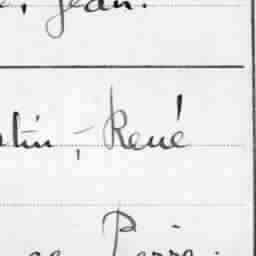 , Jean.
tin, René
Pierre.